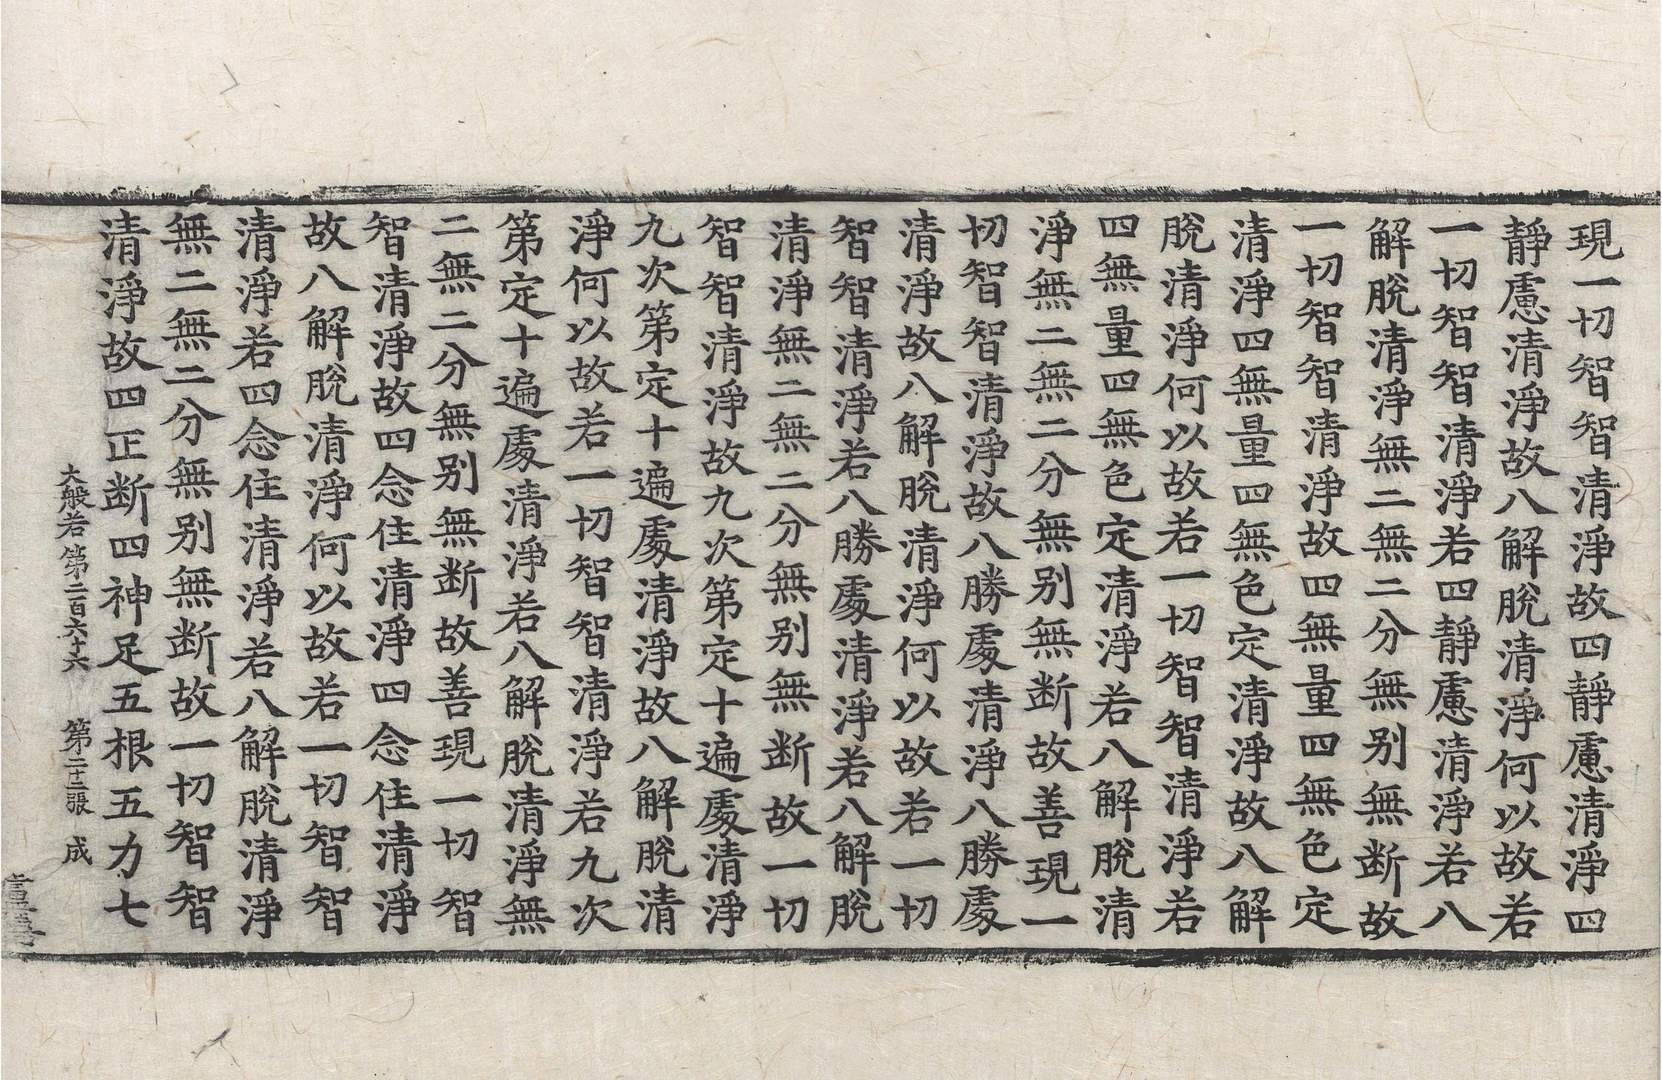 現一切智智清淨故四靜慮清淨四
靜慮清淨故八解脫清淨何以故若
一切智智清淨若四靜慮清淨若八
解脫清淨無二無二分無别無断故
一切智智清淨故四無量四無色定
清淨四無量四無色定清淨故八解
脫清淨何以故若一切智智清淨若
四無量四無色定清淨若八解脫清
淨無二無二分無别無断故善現一
切智智清淨故八勝處清淨八勝處
清淨故八解脫清淨何以故若一切
智智清淨若八勝處清淨若八解脫
清淨無二無二分無别無断故一切
智智清淨故九次第定十遍處清淨
九次第定十遍處清淨故八解脫清
淨何以故若一切智智清淨若九次
第定十遍處清淨若八解脫清淨無
二無二分無别無断故善現一切智
智清淨故四念住清淨四念住清淨
故八解脫清淨何以故若一切智智
清淨若四念住清淨若八解脫清淨
無二無二分無别無断故一切智智
清淨故四正断四神足五根五力七
大般若第二百六十六 第二十三張 成